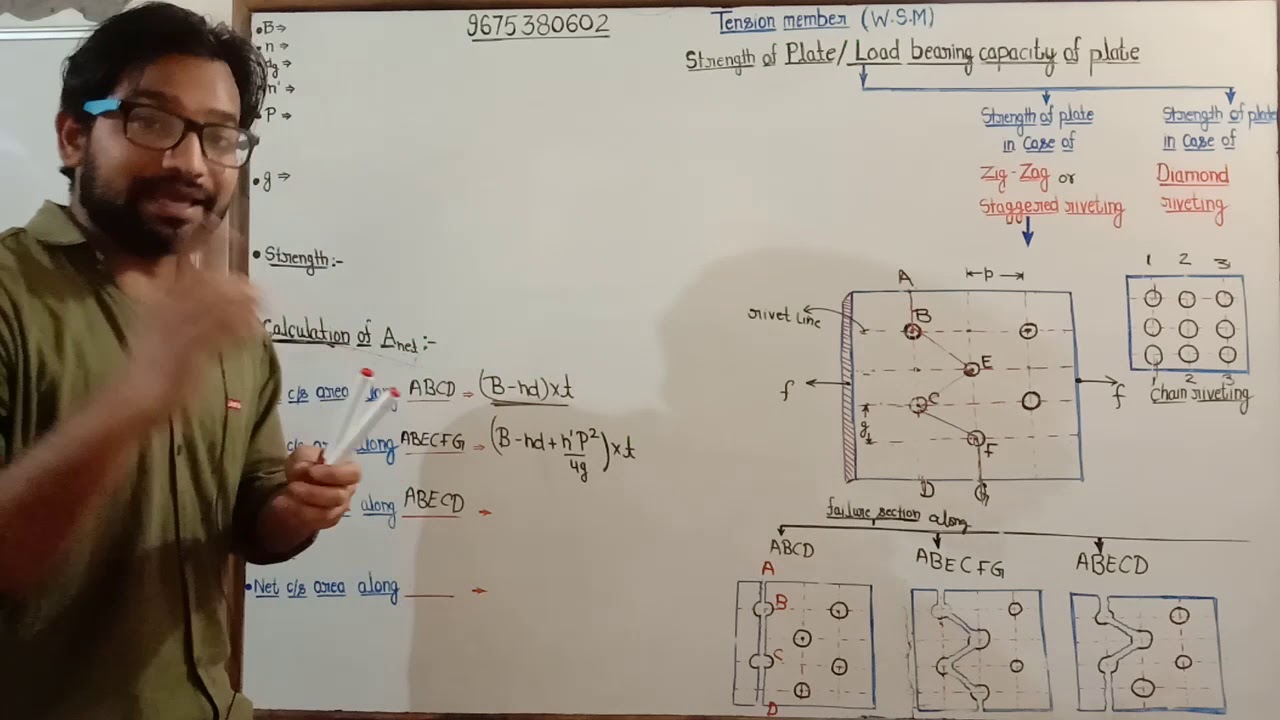 • B ⇒
• n ⇒
dg ⇒
n' ⇒
• P ⇒
• g ⇒
• Strength:-
Calculation of Anet:-
c/s area along ABCD ⇒ (B-nd)×t
c/s area along ABECFG ⇒ (B-nd+n'P²/4g)×t
along ABECD →
• Net c/s area along ____ →
9675380602
Tension member (W.S.M)
Strength of Plate/Load bearing capacity of plate
Strength of plate
in case of
Zig-Zag or
Staggered riveting
Strength of plate
in case of
Diamond
riveting
1 2 3
1 2 3
Chain riveting
A
P
rivet line
B
E
f
f
C
g
F
D
G
failure section along
ABCD
ABECFG
ABECD
A
B
C
D